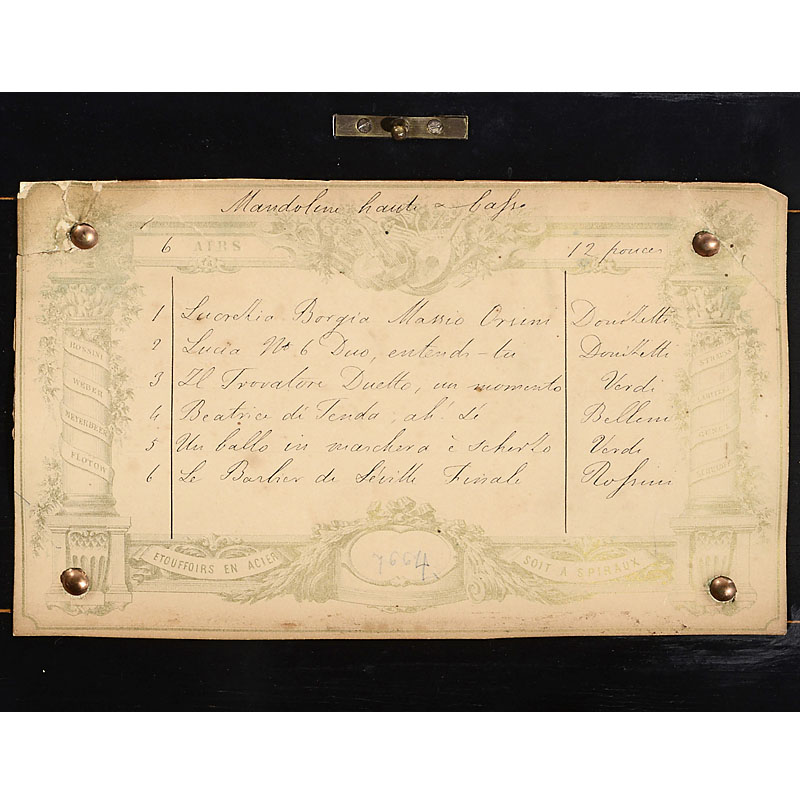 Mandoline haute & basse
6 AIRS 12 pouces
1 Lucrettia Borgia Massio Orsini Donizetti
2 Lucia No. 6 Duo, entends-tu Donizetti
3 Il Trovatore Duetto, un momento Verdi
4 Beatrice di Tenda, ah! sé Bellini
5 Un ballo in maschera è scherzo Verdi
6 Le Barbier de Séville Finale Rossini
ROSSINI
WEBER
MEYERBEER
FLOTOW
ETOUFFOIRS EN ACIER
7664
SOIT A SPIRAUX